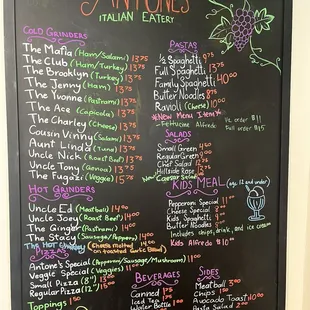 ANTONE'S
ITALIAN EATERY
COLD GRINDERS
The Mafia (Ham/Salami) 13.75
The Club (Ham/Turkey) 13.75
The Brooklyn (Turkey) 13.75
The Jenny (Ham) 13.75
The Yvonne (Pastrami) 13.75
The Ace (Capicola) 13.75
The Charley (Cheese) 13.75
Cousin Vinny (Salami) 13.75
Aunt Linda (Tuna) 13.75
Uncle Nick (Roast Beef) 13.75
Uncle Tony (Genoa) 13.75
The Fugazi (Veggie) 15.75
HOT GRINDERS
Uncle Ed (Meatball) 14.90
Uncle Joey (Roast Beef) 14.00
The Ginger (Pastrami) 14.00
The Stacy (Sausage/Pepperoni) 14.00
The Hot (Cheese melted on toasted Garlic Bread)
PIZZA
Antone's Special (Pepperoni/Sausage/Mushroom) 11.00
Veggie Special (Veggies) 11.00
Small Pizza (8")
Regular Pizza (12") 15.00
Toppings 1.50
PASTAS
1/2 Spaghetti 9.75
Full Spaghetti 13.75
Family Spaghetti 40.00
Butter Noodles 8.75
Ravioli (Cheese) 10.00
*New Menu Item*
Fettucine Alfredo 1/2 order $11
Full order $15
SALADS
Small Green 4.50
Regular Green
Chef Salad 12.75
Hillside Rose
New Caesar Salad
KIDS MEAL (age 12 and under)
Pepperoni Special 11.00
Cheese Special
Kids Spaghetti
Butter Noodles
Includes chips, drink, and ice cream
Kids Alfredo $10
BEVERAGES
Canned 1.75
Iced Tea
Water Bottle
SIDES
Meatball 3.00
Chips 1.50
Avocado Toast
Pasta Salad